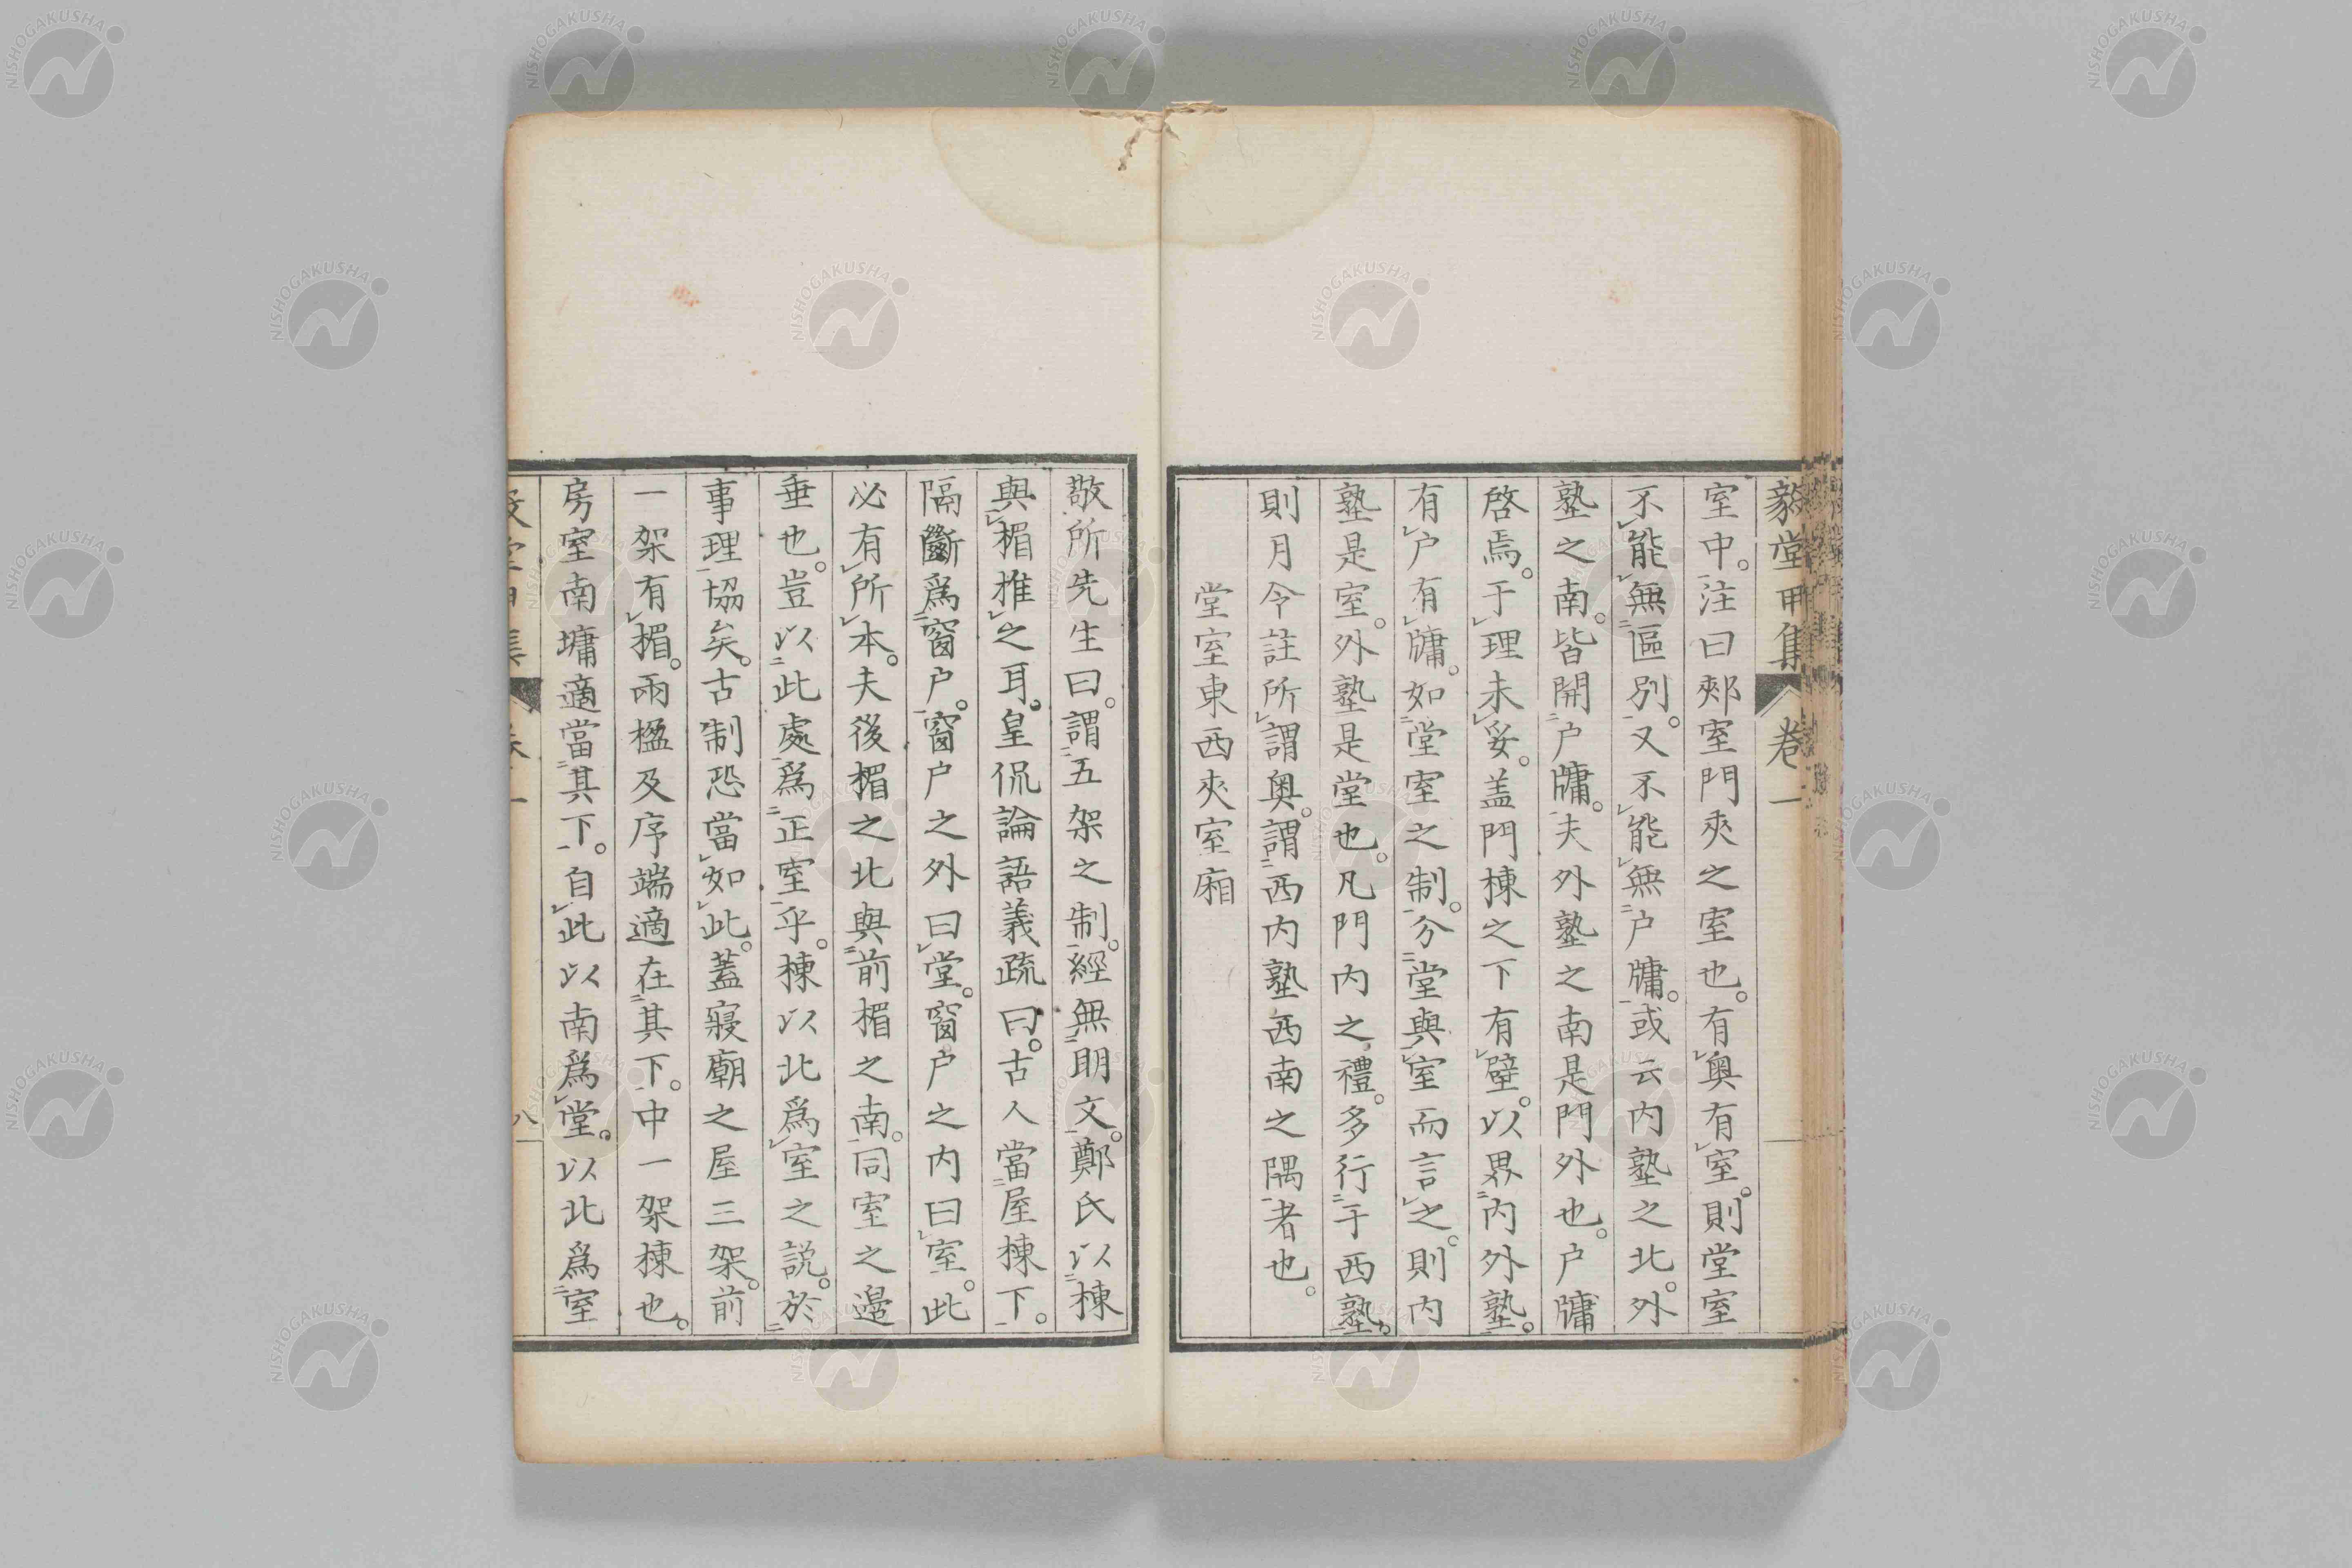 毅堂甲集 卷一
室中。注曰郟室門夾之室也。有奧有室。則堂室
不能無區別。又不能無戶牗。或云内塾之北。外
塾之南。皆開戶牗。夫外塾之南是門外也。戶牗
啓焉。于理未妥。盖門棟之下有壁。以界内外塾。
有戶有牗。如堂室之制。分堂與室而言之。則内
塾是室。外塾是堂也。凡門内之禮。多行于西塾。
則月令註所謂奧。謂西内塾西南之隅者也。
堂室東西夾室廂
敬所先生曰。謂五架之制。經無明文。鄭氏以棟
與楣推之耳。皇侃論語義疏曰。古人當屋棟下。
隔斷爲窗戶。窗戶之外曰堂。窗戶之内曰室。此
必有所本。夫後楣之北與前楣之南。同室之邊
垂也。豈以此處爲正室乎。棟以北爲室之説。於
事理協矣。古制恐當如此。蓋寢廟之屋三架。前
一架有楣。兩楹及序端適在其下。中一架棟也。
房室南墉適當其下。自此以南爲堂。以北爲室
八
NISHOGAKUSHA